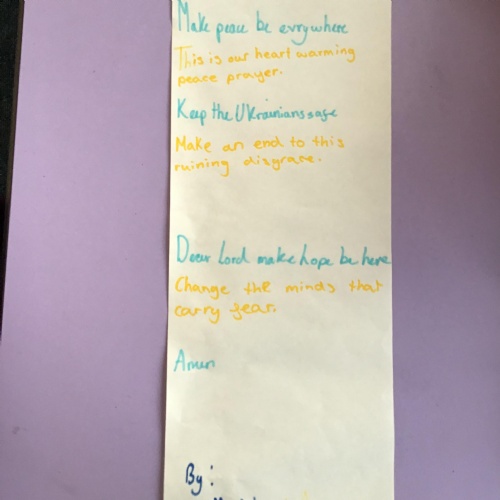 Make peace be evrywhere
This is our heart warming
peace prayer.
Keep the Ukrainians safe
Make an end to this
ruining disgrace.
Dear Lord make hope be here
Change the minds that
carry fear.
Amen
By: